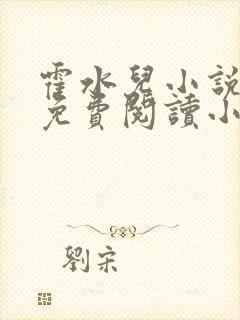 霍水兒小說
免費閱讀小
劉宋